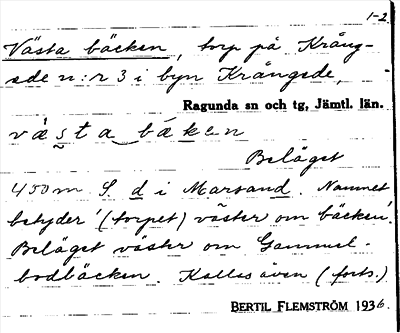 1-2
Västa bäcken, torp på Krång-
ede n:r 3 i byn Krångede,
Ragunda sn och tg, Jämtl. län.
västa bäken
Beläget
450 m S. d i Marsand. Namnet
betyder '(torpet) väster om bäcken'.
Beläget väster om Gammel-
bodbäcken. Kallas även (forts.)
BERTIL FLEMSTRÖM 1936.